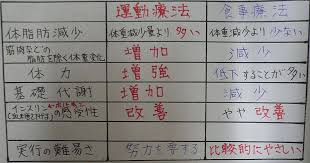 運動療法 食事療法
体脂肪減少 体重減少より多い 体重減少より少ない
筋肉などの
脂肪を除く体重変化 増加 減少
体力 増強 低下することが多い
基礎代謝 増加 減少
インスリン
の感受性 改善 やや改善
実行の難易さ 努力を要する 比較的にやさしい